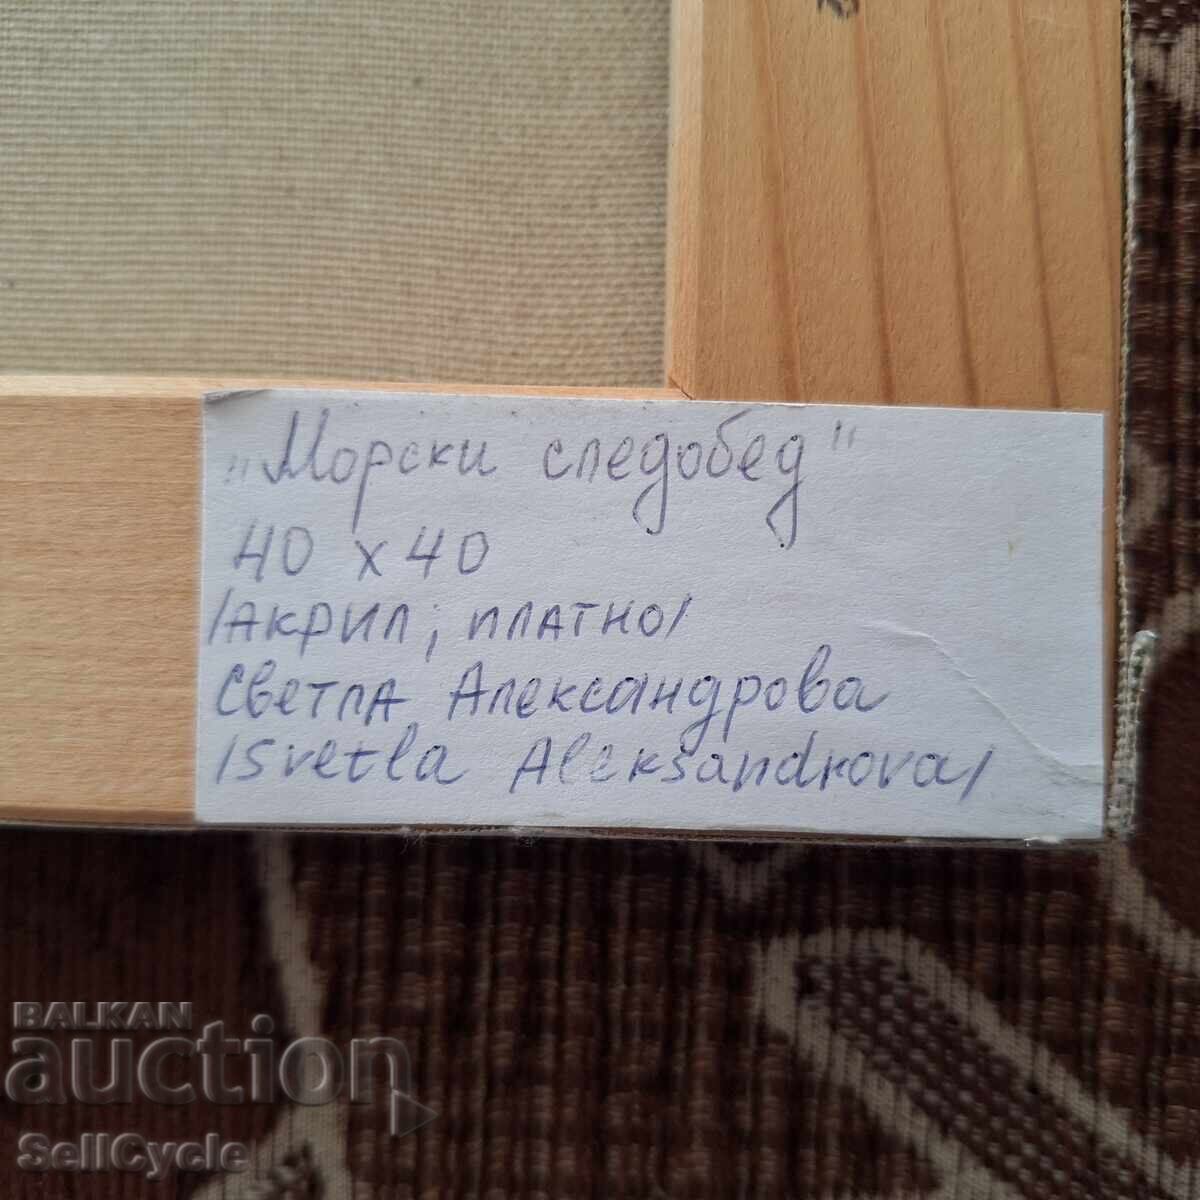 „Морски следобед"
40 x 40
/АКРИЛ; ПЛАТНО/
Светла Александрова
/Svetla Aleksandrova/
BALKAN
auction
SellCycle